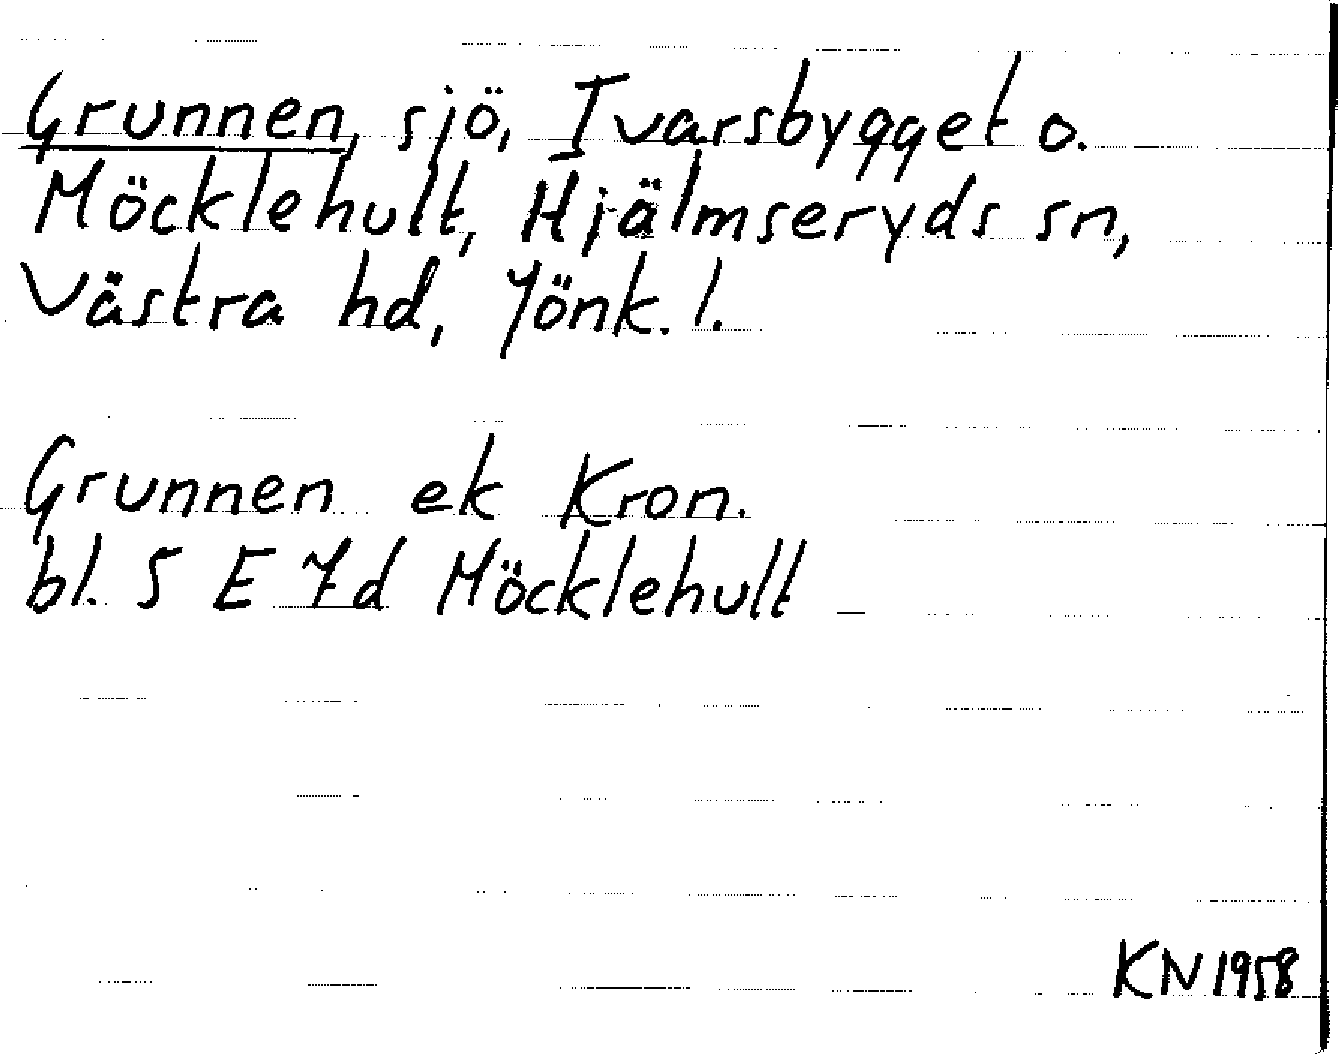 Grunnen, sjö, Ivarsbygget o.
Möcklehult, Hjälmseryds sn,
Västra hd, Jönk. l.
Grunnen ek Kron.
bl. 5 E 7d Möcklehult
KN 1958